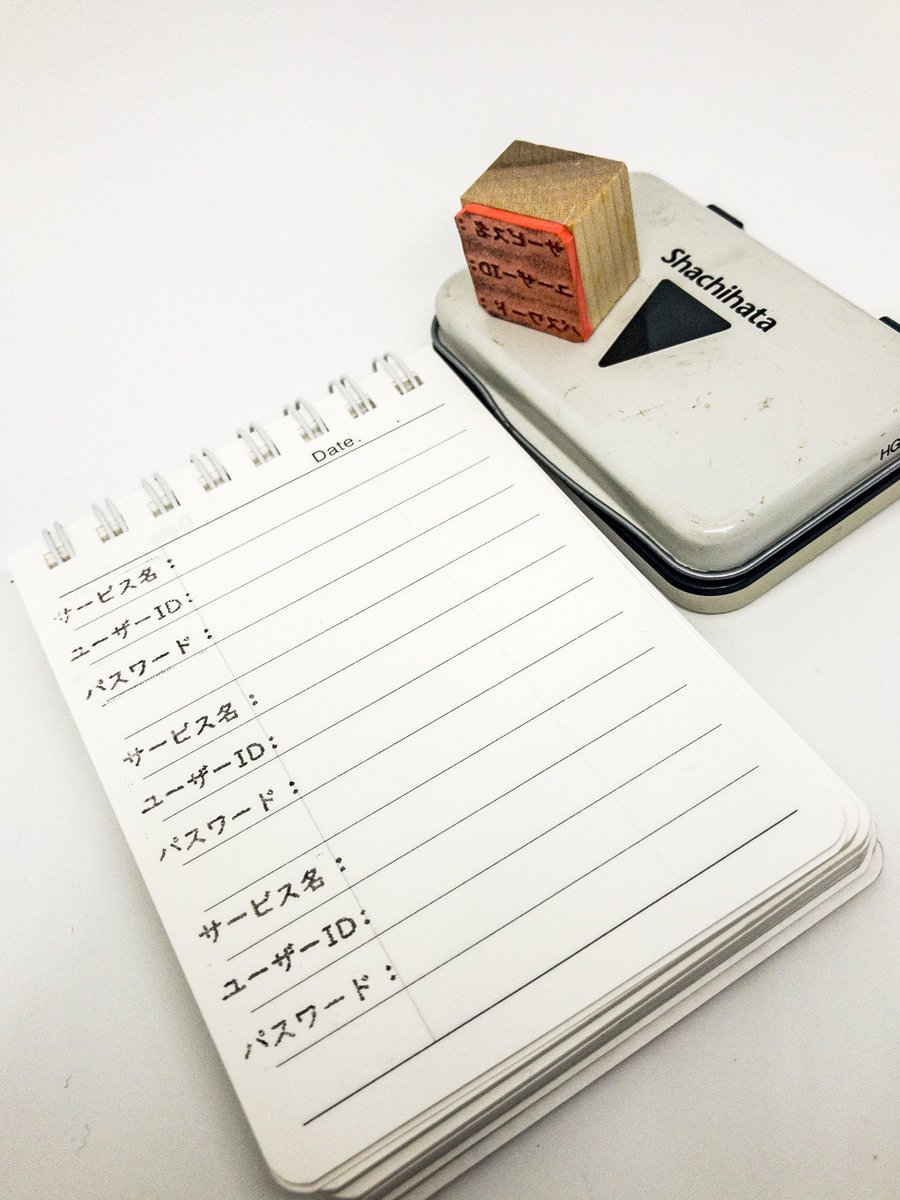 サービス名:
ユーザーID:
パスワード:
Shachihata
HG
Date.
サービス名:
ユーザーID:
パスワード:
サービス名:
ユーザーID:
パスワード:
サービス名:
ユーザーID:
パスワード: